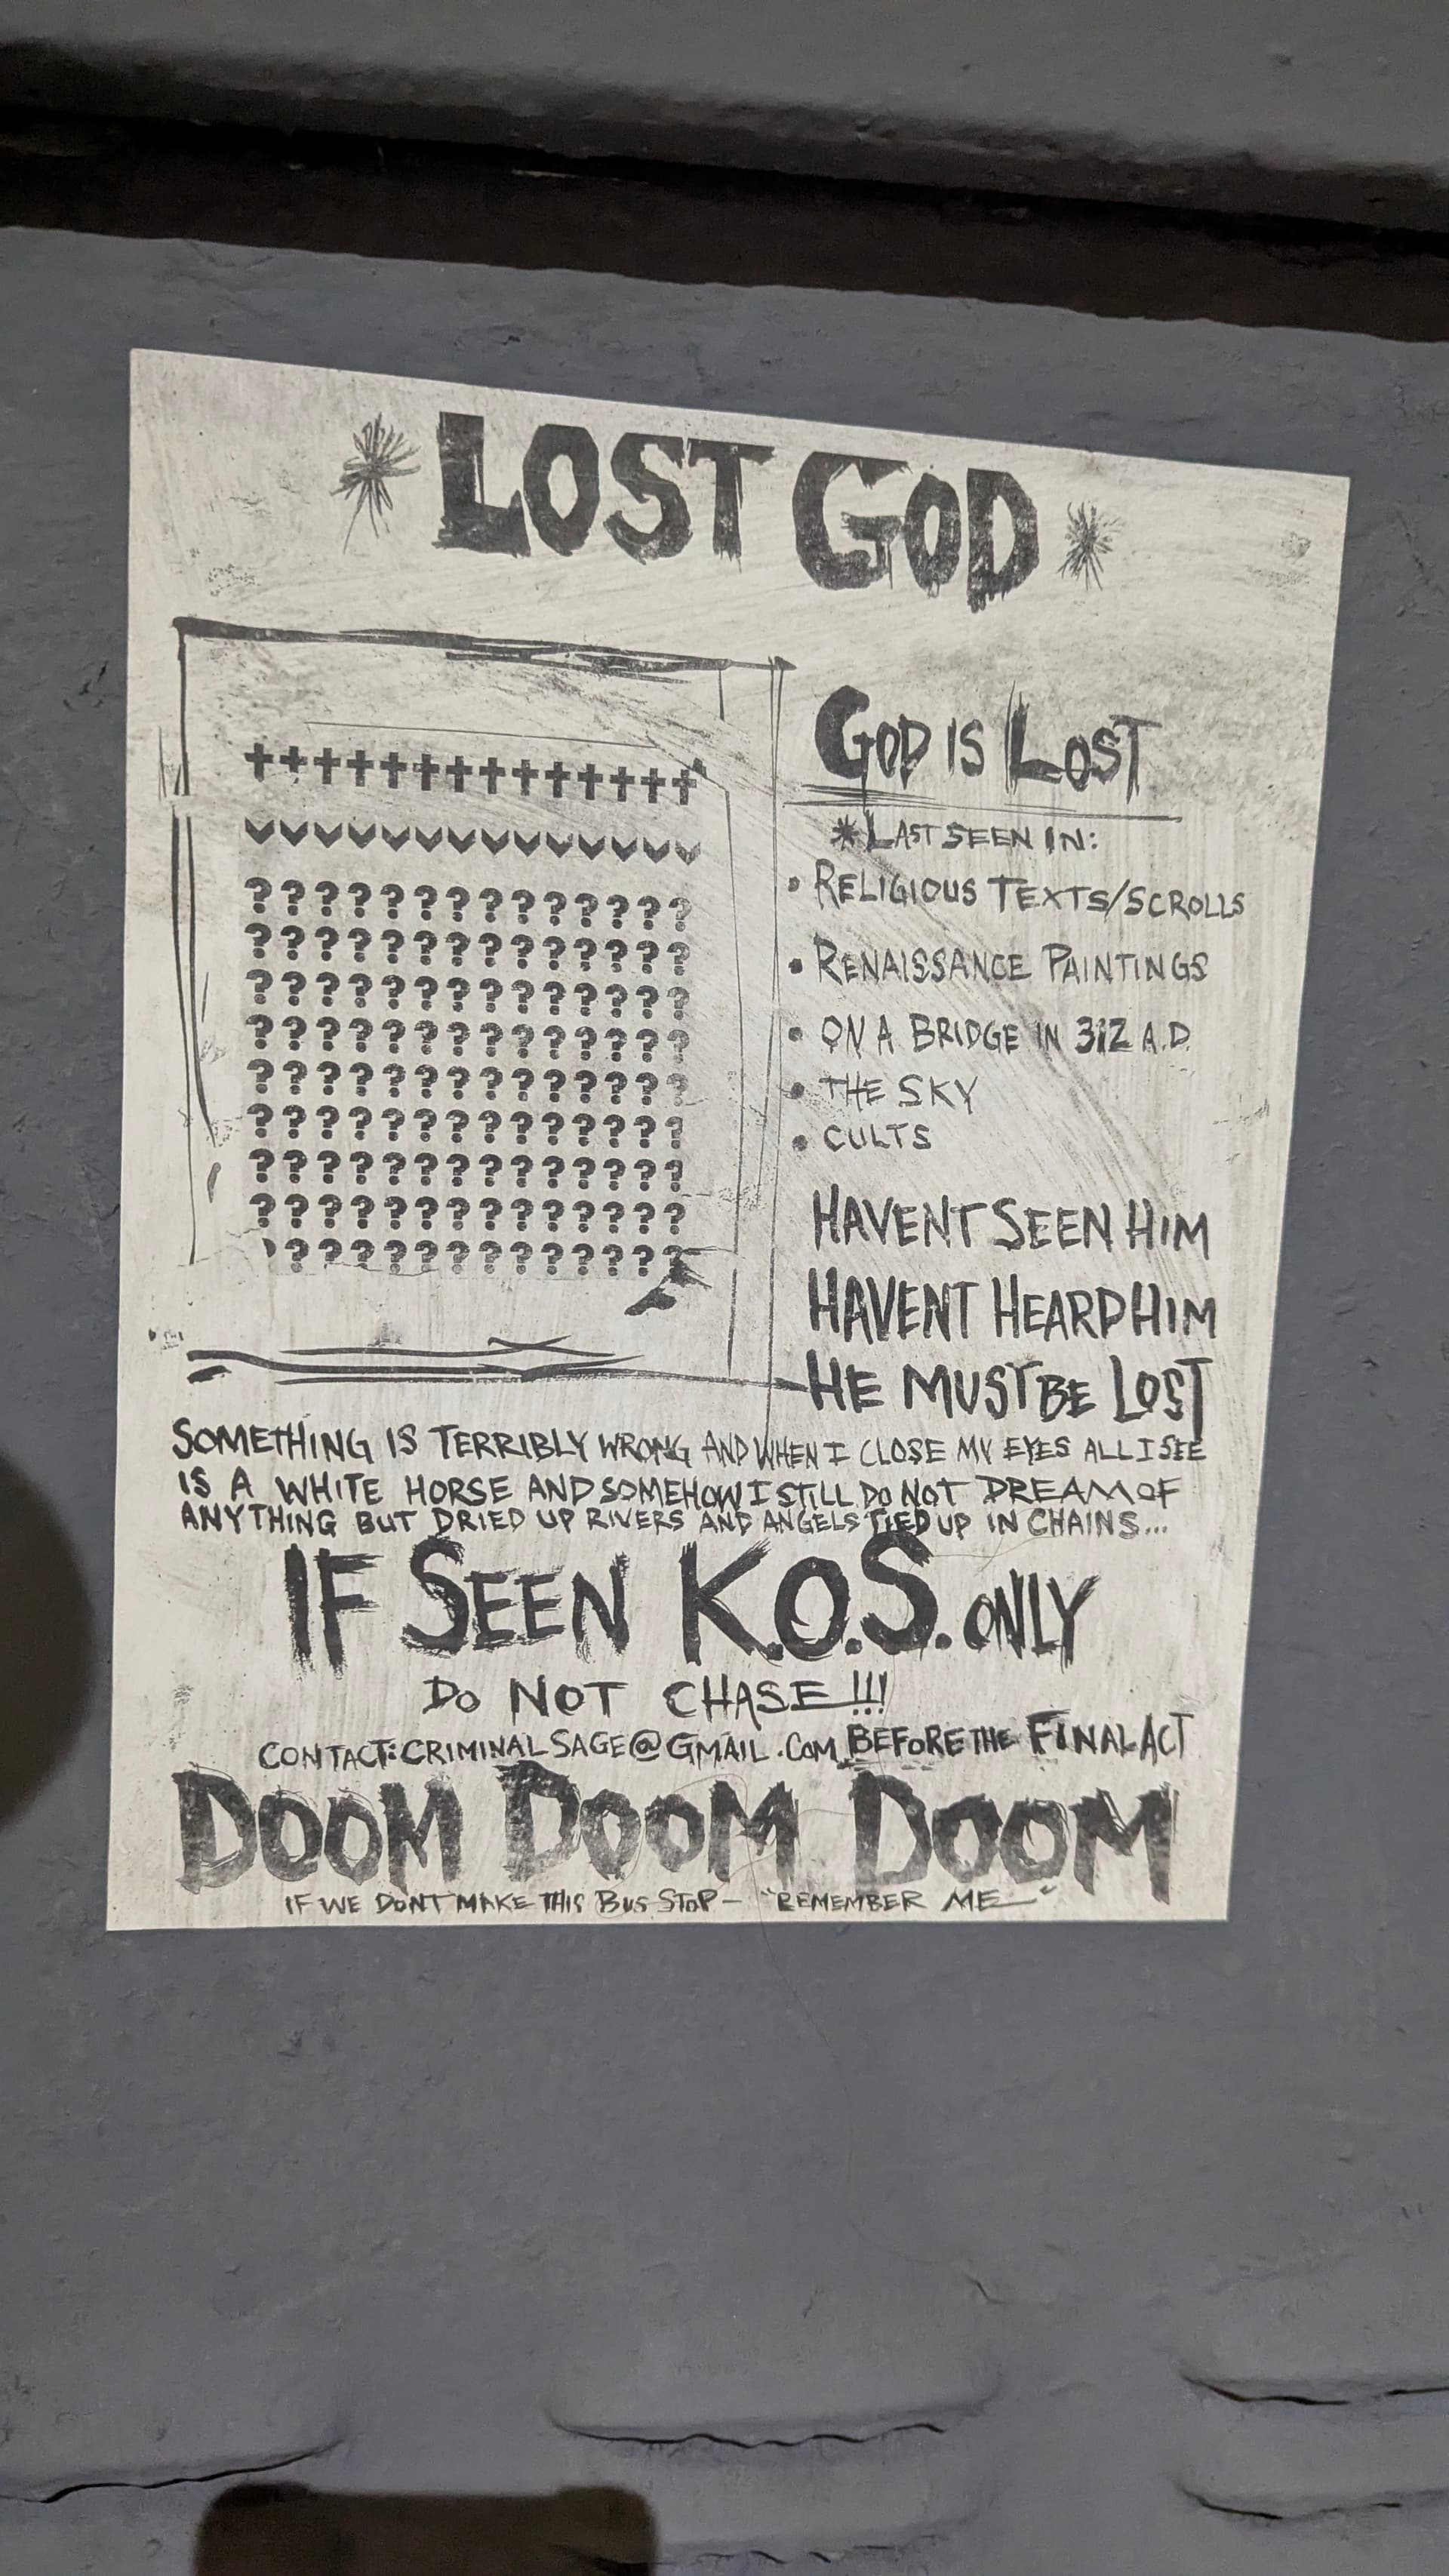 * LOST GOD *
✝✝✝✝✝✝✝✝✝✝✝✝✝✝
??????????????
??????????????
??????????????
??????????????
??????????????
??????????????
??????????????
??????????????
?????????????
GOD IS LOST
* LAST SEEN IN:
• RELIGIOUS TEXTS/SCROLLS
• RENAISSANCE PAINTINGS
• ON A BRIDGE IN 312 A.D.
• THE SKY
• CULTS
HAVENT SEEN HIM
HAVENT HEARD HIM
HE MUST BE LOST
SOMETHING IS TERRIBLY WRONG AND WHEN I CLOSE MY EYES ALL I SEE
IS A WHITE HORSE AND SOMEHOW I STILL DO NOT DREAM OF
ANYTHING BUT DRIED UP RIVERS AND ANGELS TIED UP IN CHAINS...
IF SEEN K.O.S. ONLY
DO NOT CHASE!!!
CONTACT: CRIMINALSAGE@GMAIL.COM BEFORE THE FINAL ACT
DOOM DOOM DOOM
IF WE DONT MAKE THIS BUS STOP - "REMEMBER ME"